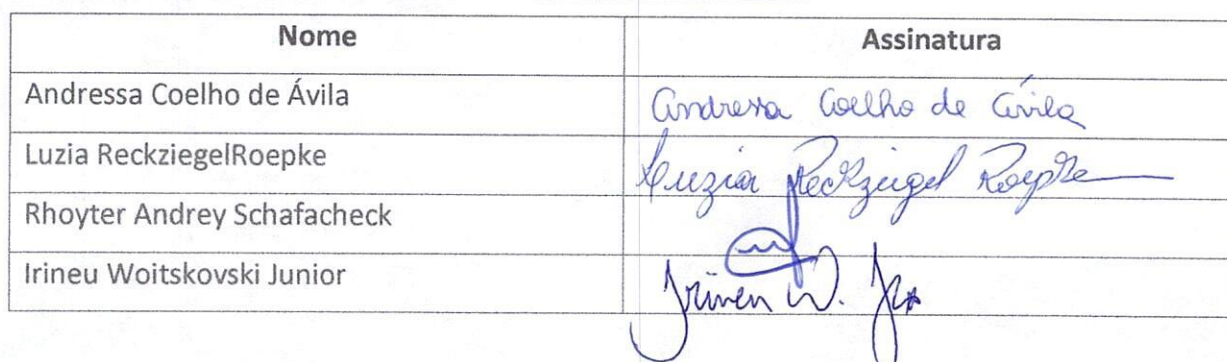 Nome Assinatura
Andressa Coelho de Ávila Andressa Coelho de Ávila
Luzia ReckziegelRoepke Luzia Reckziegel Roepke
Rhoyter Andrey Schafacheck
Irineu Woitskovski Junior Irineu W. Jr